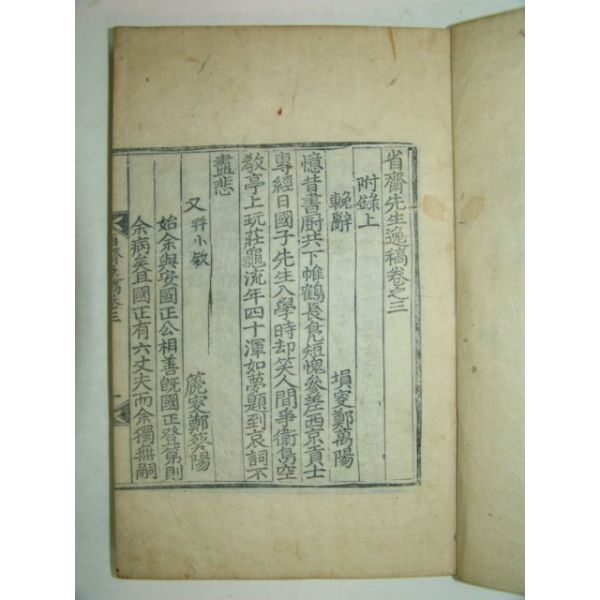 省齋先生逸稿卷之三
附錄上
輓辭 塤叟鄭萬陽
憶昔書厨共下帷鶴長鳧短愧參差西京貢士
專經日國子先生入學時却笑人間爭衛空
教亭上玩莊龜流年四十渾如夢題到哀詞不
盡悲
又 幷小敘 篪叟鄭葵陽
始余與安國正公相善旣國正登第則
余病矣且國正有六丈夫而余獨無嗣
省齋逸稿卷三